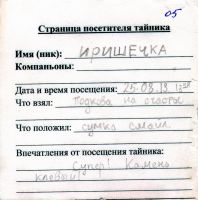 05
Страница посетителя тайника
Имя (ник): ИРИШЕЧКА
Компаньоны:
Дата и время посещения: 25.08.13
Что взял: Подкова на
Что положил: сумка смайл
Впечатления от посещения тайника:
Супер! Камень
клевый!